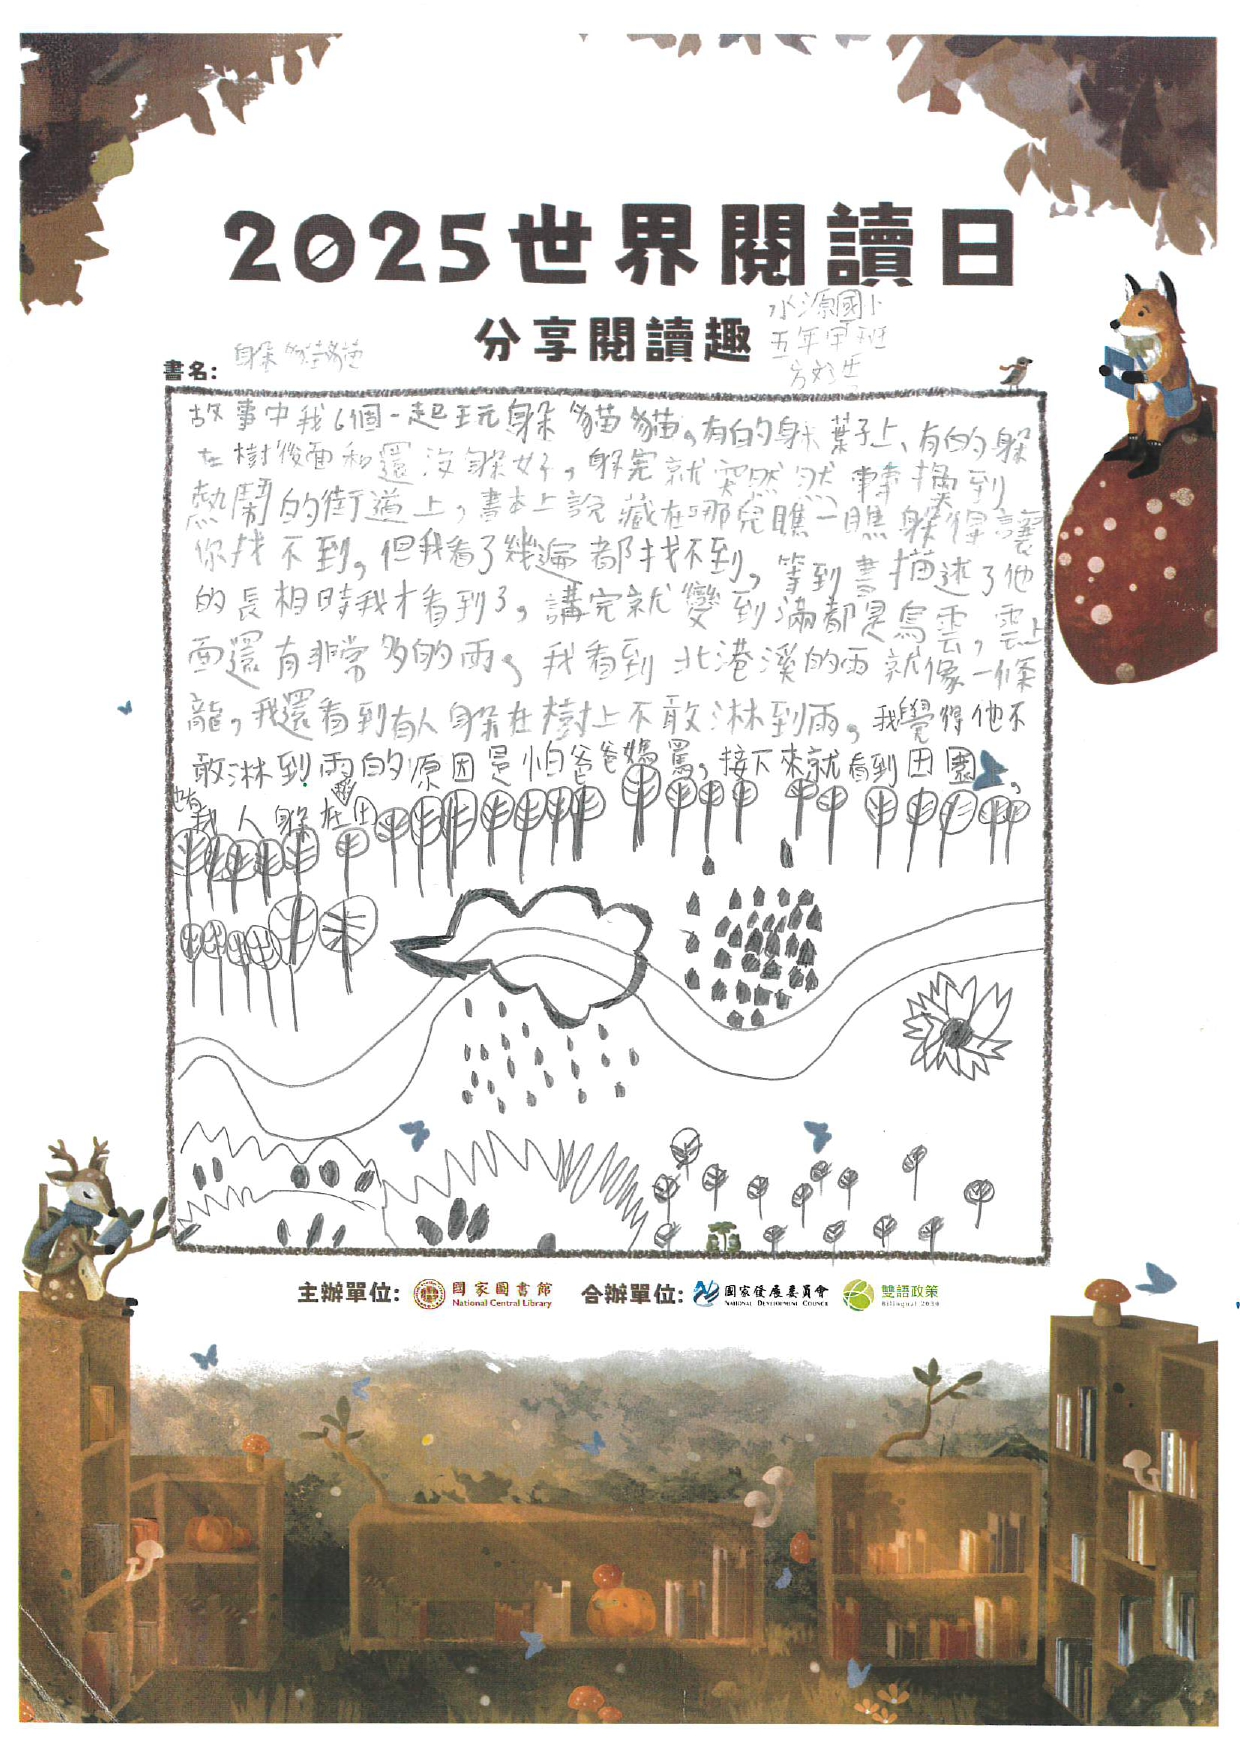 2025世界閱讀日
分享閱讀趣
水源國小
五年甲班
書名:
躲貓貓
故事中我6個一起玩躲貓貓。有的躲葉子上、有的躲
在樹後面和還沒躲好,躲完就突然然轉換到
熱鬧的街道上,書本上說藏在哪兒瞧一瞧躲得讓
你找不到。但我看了幾遍都找不到,等到書描述了他
的長相時我才看到了,講完就變到滿都是烏雲,雲上
面還有非常多的雨。我看到北港溪的雨就像一條
龍,我還看到有人躲在樹上不敢淋到雨。我覺得他不
敢淋到雨的原因是怕爸爸媽罵。接下來就看到田園,
我人躲在田
主辦單位:
國家圖書館
National Central Library
合辦單位:
國家發展委員會
National Development Council
雙語政策
Bilingual 2030